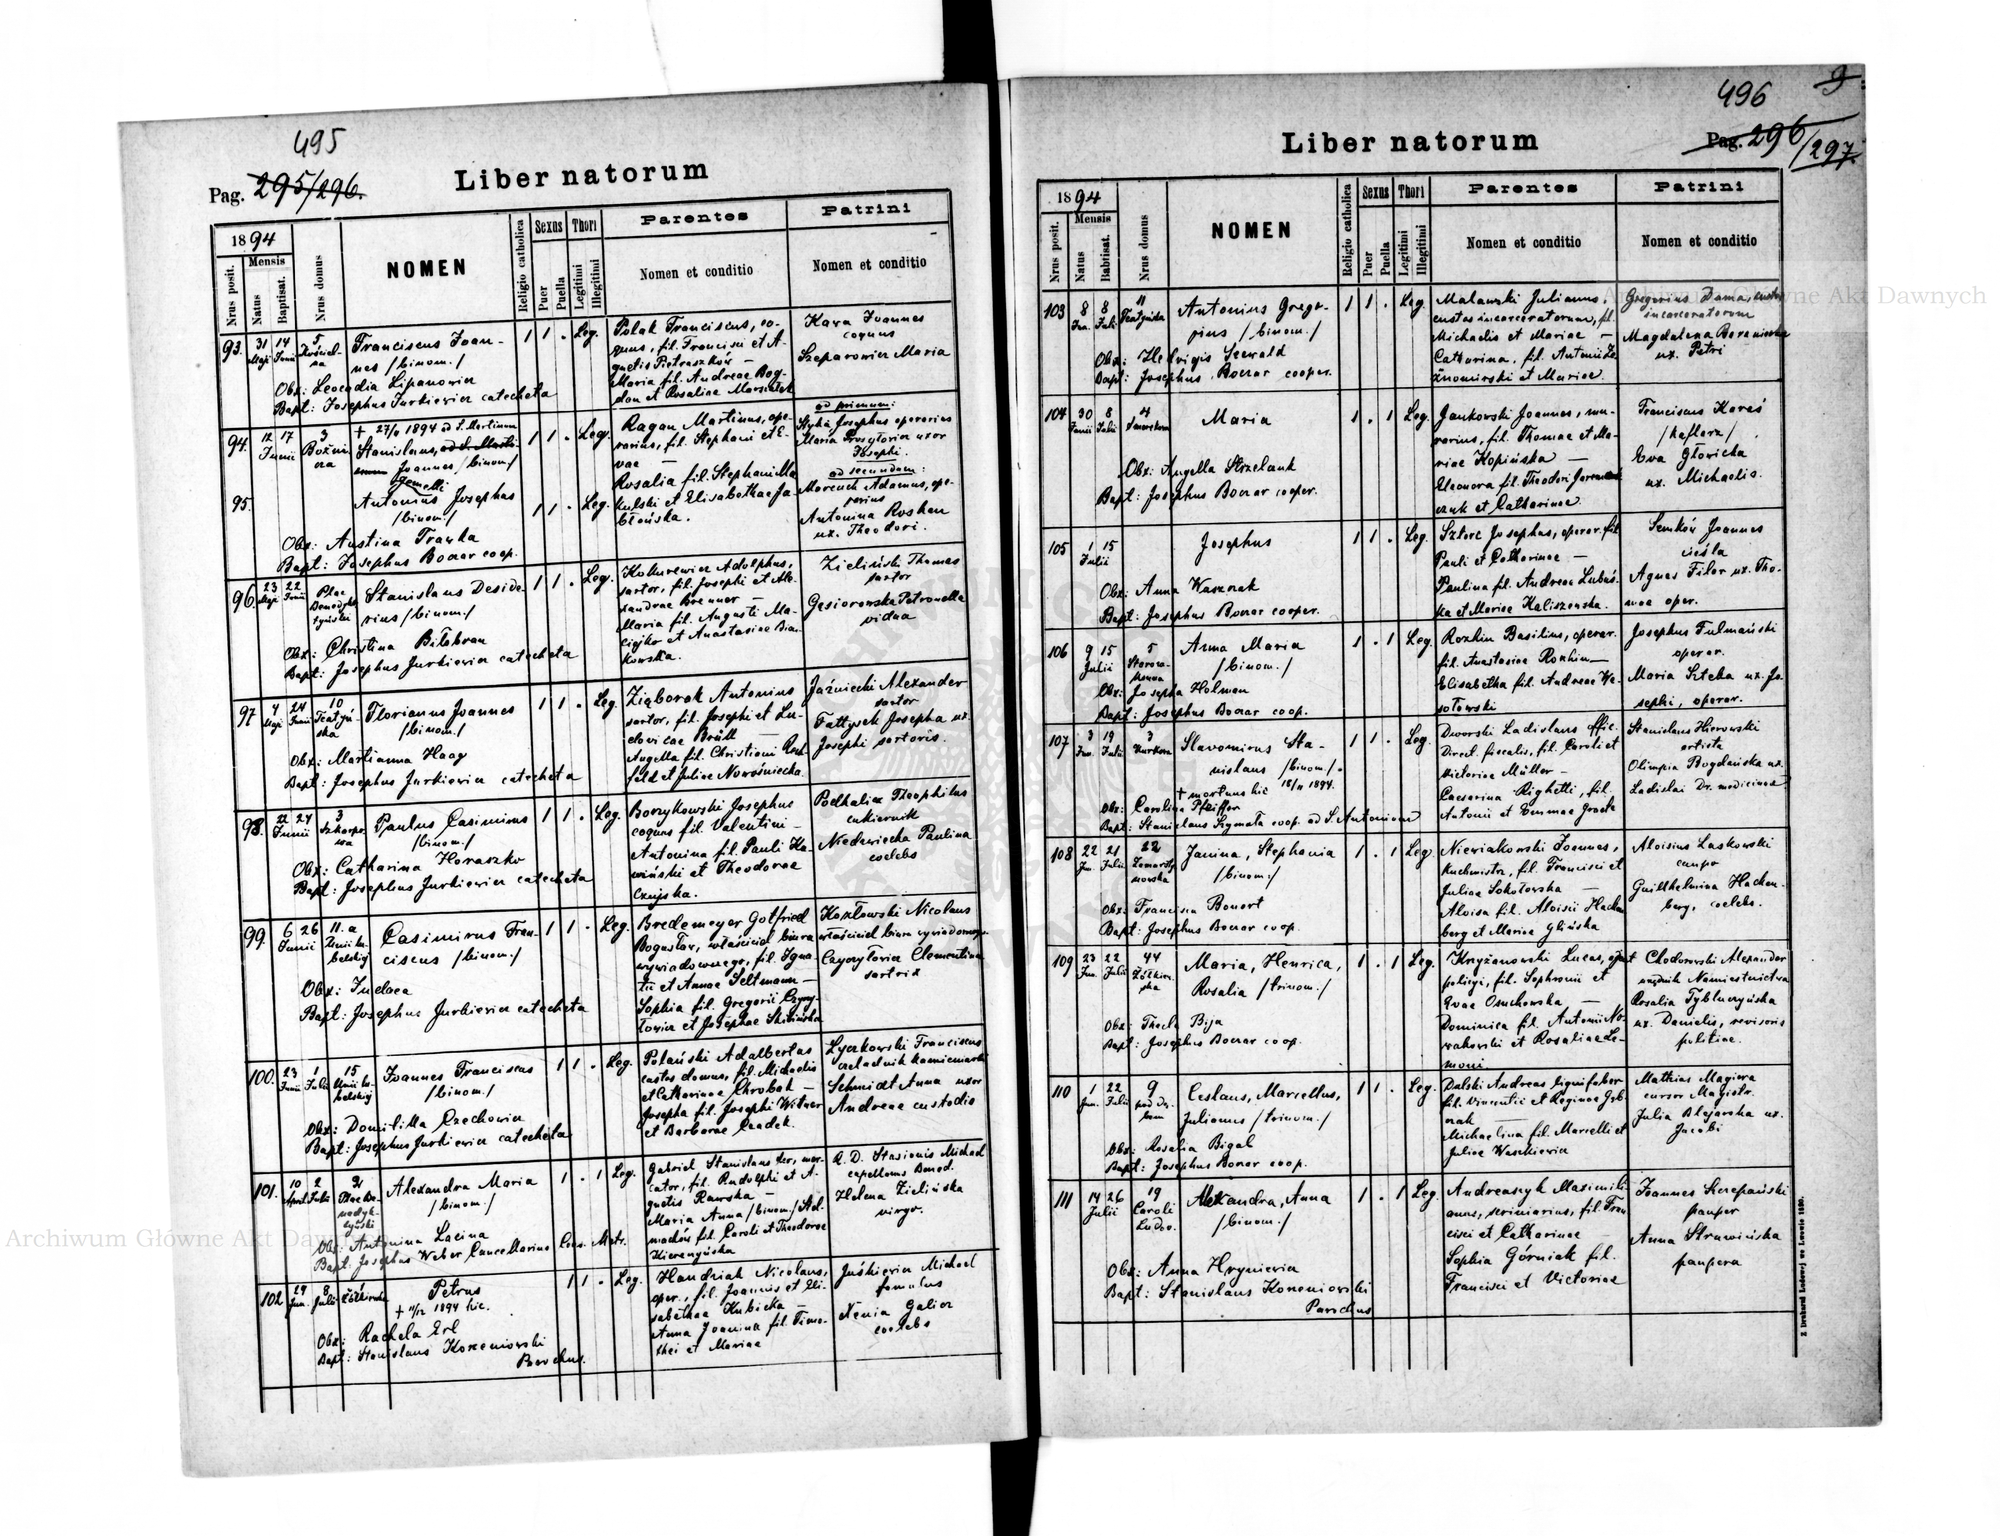 495
Pag. 295/296.
Liber natorum
1894
Mensis
Nrus posit.
Natus
Baptisat.
Nrus domus
NOMEN
Religio catholica
Sexus
Puer
Puella
Thori
Legitimi
Illegitimi
Parentes
Nomen et conditio
Patrini
Nomen et conditio
93. 31 Maji 14 Junii 5
Franciscus Joan-
nes /binom./
Obx: Leocadia Lipanowicz
Bapt: Josephus Jurkiewicz catecheta
1 1 . Leg.
Polak Franciscus, co-
quus, fil. Francisci et A-
gnetis Pietraszków —
Maria fil. Andreae Bog-
dan et Rosaliae
Kara Joannes
coquus
Szeparowicz Maria
94. 12 17 Junii 3
† 27/11 1894 ad S. Martinum
Stanislaus,
Joannes /binom/
gemelli
1 1 . Leg.
Ragan Martinus, ope-
rarius, fil. Stephani et E-
vae —
Rosalia fil. Stephani
et Elisabethae Ja-
błońska.
ad primum:
Josephus operarius
Maria uxor
Josephi.
ad secundum:
Adamus, ope-
rarius
Antonina Roskan
ux. Theodori.
95.
Antonius Josephus
/binom/
1 1 . Leg.
Obx: Austina Franka
Bapt: Josephus Boczar coop.
96. 23 Maji 22 Junii
Plac
Stanislaus Deside-
rius /binom/
Obx: Christina Biłobran
Bapt: Josephus Jurkiewicz catecheta
1 1 . Leg.
Adolphus,
sartor, fil. Josephi et Ale-
xandrae Brenner —
Maria fil. Augusti Ma-
et Anastasiae
Zieliński Thomas
sartor
Gąsiorowska Petronella
vidua
97. 4 Maji 24 Junii 10
Teatyń-
ska
Florianus Joannes
/binom./
Obx: Martianna Haag
Bapt: Josephus Jurkiewicz catecheta
1 1 . Leg.
Ziąborak Antonius
sartor, fil. Josephi et Lu-
dovicae Brüll —
Angella fil. Christiani Rech-
feld et Juliae
Jaźniecki Alexander
sartor
Josepha ux.
Josephi sartoris.
98. 22 24 Junii 3
Szkarpo-
wa
Paulus Casimirus
/binom./
Obx: Catharina Haraszko
Bapt: Josephus Jurkiewicz catecheta
1 1 . Leg.
Borzykowski Josephus
coquus fil. Valentini —
Antonina fil. Pauli Ka-
wiński et Theodorae
Czujska.
Podhalicz Theophilus
cukiernik
Niedzwiecka Paulina
coelebs
99. 6 26 Junii 11. a
Unii lu-
belskiej
Casimirus Fran-
ciscus /binom./
Obx: Judaea
Bapt: Josephus Jurkiewicz catecheta
1 1 . Leg.
Bredemeyer Gotfried
Bogusław, właściciel biura
wywiadowczego, fil. Igna-
tii et Annae Seltmann —
Sophia fil. Gregorii Czyry-
łowicz et Josephae
Kozłowski Nicolaus
właściciel biura wywiadowczego
Czyryłowicz Clementina
sartrix
100. 23 Junii 1 Julii 15
Unii lu-
belskiej
Joannes Franciscus
/binom./
Obx: Domicilla Czechowicz
Bapt: Josephus Jurkiewicz catecheta
1 1 . Leg.
Polański Adalbertus
custos domus, fil. Michaelis
et Catharinae Chrobak —
Josepha fil. Josephi Witner
et Barbarae Czadek.
Łyczkowski Franciscus
czeladnik kamieniarski
Schmidt Anna uxor
Andreae custodis
101. 10 April 2 Julii
Alexandra Maria
/binom./
Obx: Antonina Lacina
Bapt: Josephus Weber Cancellarius Cons. Metr.
1 . 1 Leg.
Gabriel Stanislaus ter, mer-
cator, fil. Rudolphi et A-
gnetis Rawska —
Maria Anna /binom/
fil. Caroli et Theodorae
R. D. Stasionis Michael
capellanus Bened.
Helena Zielińska
virgo.
102. 29 Jun. 8 Julii
Żółkiewska
Petrus
† 11/12 1894 hic.
Obx: Rachela Erl
Bapt: Stanislaus Korzeniowski
Parochus.
1 1 . Leg.
Handriak Nicolaus,
oper., fil. Joannis et Eli-
sabethae Kubicka —
Anna Joannina fil. Timo-
thei et Mariae
Juśkiewicz Michael
famulus
Xenia Galicz
coelebs
496
9
Liber natorum
Pag. 296/297.
1894
Mensis
Nrus posit.
Natus
Babtisat.
Nrus domus
NOMEN
Religio catholica
Sexus
Puer
Puella
Thori
Legitimi
Illegitimi
Parentes
Nomen et conditio
Patrini
Nomen et conditio
103 8 Jun. 8 Juli 11
Teatyńska
Antonius Grego-
rius /binom./
Obx: Hedvigis Seewald
Bapt: Josephus Boczar cooper.
1 1 . Leg.
Malawski Julianus,
custos incarceratorum, fil.
Michaelis et Mariae —
Catharina, fil. Antonii
et Mariae.
Gregorius Dama, custos
incarceratorum
Magdalena
ux. Petri
104 30 Junii 8 Julii 4
Maria
Obx: Angella Strzelank
Bapt: Josephus Boczar cooper.
1 . 1 Leg.
Jankowski Joannes, mu-
rarius, fil. Thomae et Ma-
riae Kopińska —
Eleonora fil. Theodori
et Catharinae
Franciscus Karaś
/kaflarz/
Eva Głowicka
ux. Michaelis.
105 1 15
Julii
Josephus
Obx: Anna Waszczak
Bapt: Josephus Boczar cooper.
1 1 . Leg.
Sztorc Josephus, operar. fil.
Pauli et Catharinae —
Paulina fil. Andreae Lubus-
ka et Mariae Kaliszewska.
Semków Joannes
cieśla
Agnes Filar ux. Tho-
mae oper.
106 9 15 Julii 5
Anna Maria
/binom./
Obx: Josepha Holman
Bapt: Josephus Boczar coop.
1 . 1 Leg.
Rozhin Basilius, operar.
fil. Anastasiae Rozhin —
Elisabetha fil. Andreae We-
sołowski
Josephus Fulmański
operar.
Maria Szteba ux. Jo-
sephi, operar.
107 3 Jun. 19 Julii 3
Kurkowa
Slavomirus Sta-
nislaus /binom./
† mortuus hic 18/11 1894.
Obx: Carolina Pfeiffer
Bapt: Stanislaus Szymała coop. ad S. Antonium
1 1 . Leg.
Dworski Ladislaus offic.
Direct. fiscalis, fil. Caroli et
Victoriae Müller —
Caesarina Righetti, fil.
Antonii et Emmae
Stanislaus Hierowski
artista
Olimpia Bogdańska ux.
Ladislai Dr. medicinae
108 22 Jun. 21 Julii 22
Janina, Stephania
/binom./
Obx: Francisca Bonert
Bapt: Josephus Boczar coop.
1 . 1 Leg.
Niewiakowski Joannes,
Kuchmistrz, fil. Francisci et
Juliae Sokołowska —
Aloisa fil. Aloisii Hacken-
berg et Mariae Glińska
Aloisius Laskowski
caupo
Guilhelmina Hacken-
berg, coelebs.
109 23 Jun. 22 Julii 44
Żółkiew-
ska
Maria, Henrica,
Rosalia /trinom./
Obx: Thecla Bija
Bapt: Josephus Boczar coop.
1 . 1 Leg.
Kryżanowski Lucas, ajent
policyi, fil. Sophronii et
Evae Onuchowska —
Dominica fil. Antonii No-
wakowski et Rosaliae Le-
moni.
Chodorowski Alexander
Namiestnictwa
Rosalia Tyblurzyńska
ux. Danielis, revisoris
politiae.
110 1 Jun. 22 Julii 9
pod Dę-
bem
Ceslaus, Marcellus,
Julianus /trinom./
Obx: Rosalia Bigal
Bapt: Josephus Boczar coop.
1 1 . Leg.
Dalski Andreas lignifaber
fil. Vincentii et Reginae Grb-
czak —
Michaelina fil. Marcelli et
Juliae Waszkiewicz
Mathias Magiera
cursor Magistr.
Julia Blajarska ux.
Jacobi
111 14 26
Julii 19
Caroli
Ludov.
Alexandra, Anna
/binom./
Obx: Anna Hryniewicz
Bapt: Stanislaus Korzeniowski
Parochus
1 . 1 Leg.
Andreaszyk Maximili-
anus, scriniarius, fil. Fran-
cisci et Catharinae —
Sophia Górniak fil.
Francisci et Victoriae
Joannes Szczepański
pauper
Anna Strawińska
paupera
Z Drukarni Ludowej we Lwowie
Archiwum Główne Akt Dawnych
Archiwum Główne Akt Dawnych